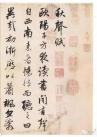 秋聲賦
歐陽子方夜讀書聞有聲
自西南来者悚然而聽之曰
異哉初淅瀝以蕭颯